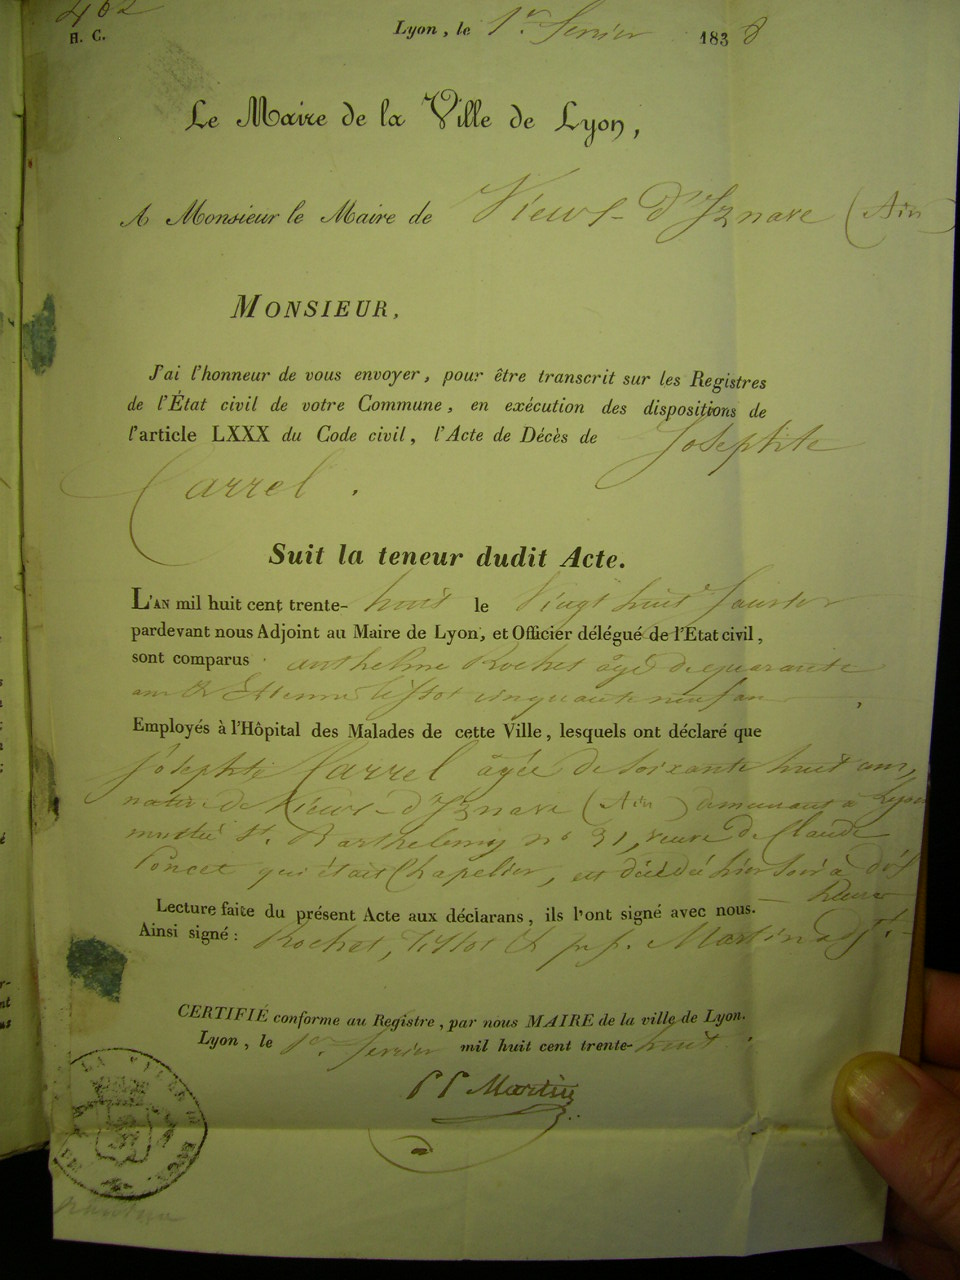 402
H. C.
Lyon, le 1er. fevrier 1838
Le Maire de la Ville de Lyon,
A Monsieur le Maire de Vieux-d'Iznave (Ain)
MONSIEUR,
J'ai l'honneur de vous envoyer, pour être transcrit sur les Registres
de l'État civil de votre Commune, en exécution des dispositions de
l'article LXXX du Code civil, l'Acte de Décès de Josephte
Carrel.
Suit la teneur dudit Acte.
L'AN mil huit cent trente-huit le Vingt huit Janvier
pardevant nous Adjoint au Maire de Lyon, et Officier délégué de l'Etat civil,
sont comparus anthelme Rochet âgé de quarante
ans & Etienne Tissot cinquante neuf ans,
Employés à l'Hôpital des Malades de cette Ville, lesquels ont déclaré que
Josephte Carrel âgée de soixante huit ans,
native de Vieux-d'Iznave (Ain) demeurant à Lyon
montée St. Barthelemy no 31, veuve de Claude
Poncet qui était Chapelier, est décédé hier soir à dix
heures
Lecture faite du présent Acte aux déclarans, ils l'ont signé avec nous.
Ainsi signé: Rochet, Tissot & pp. Martin adjt.
CERTIFIÉ conforme au Registre, par nous MAIRE de la ville de Lyon.
Lyon, le 1er fevrier mil huit cent trente-huit.
PP Martin
LA VILLE